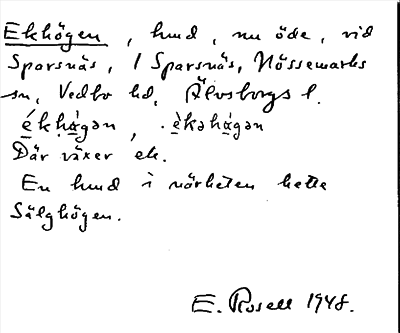 Ekhögen, hmd, nu öde, vid
Sparsnäs, 1 Sparsnäs, Nössemarks
sn, Vedbo hd, Älvsborgs l.
é̠khὰ̠gən, è̠kəhά̠gən
Där växer ek.
En hmd i närheten hette
Sälghögen.
E. Rosell 1948.